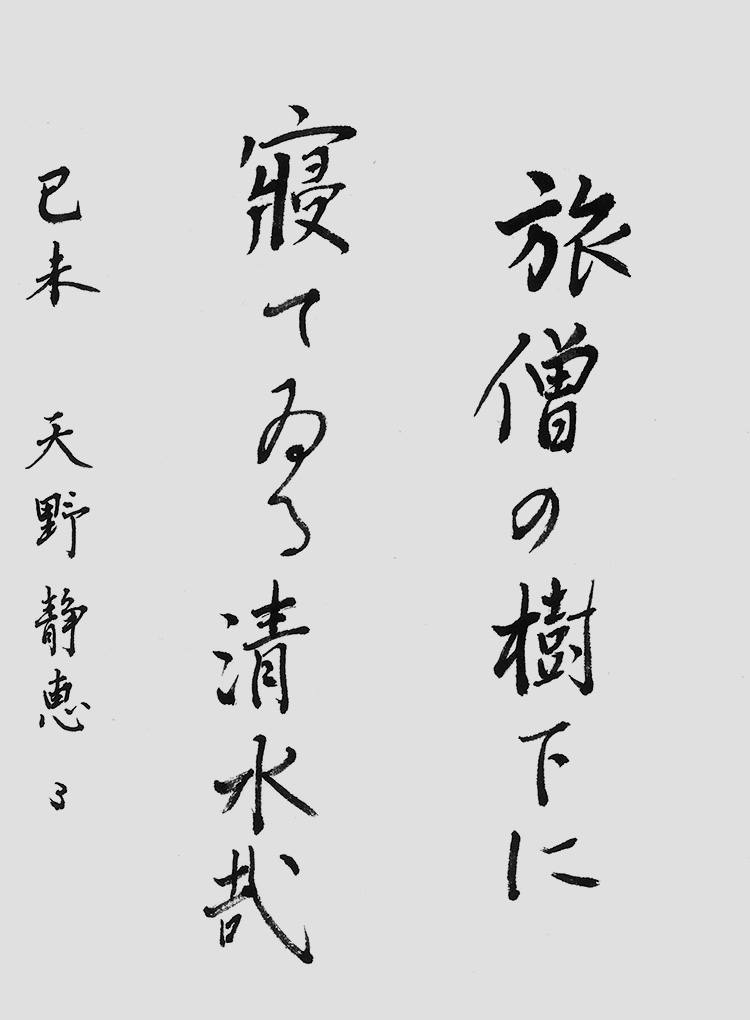 旅僧の樹下に
寢てゐる清水哉
己未 天野静恵